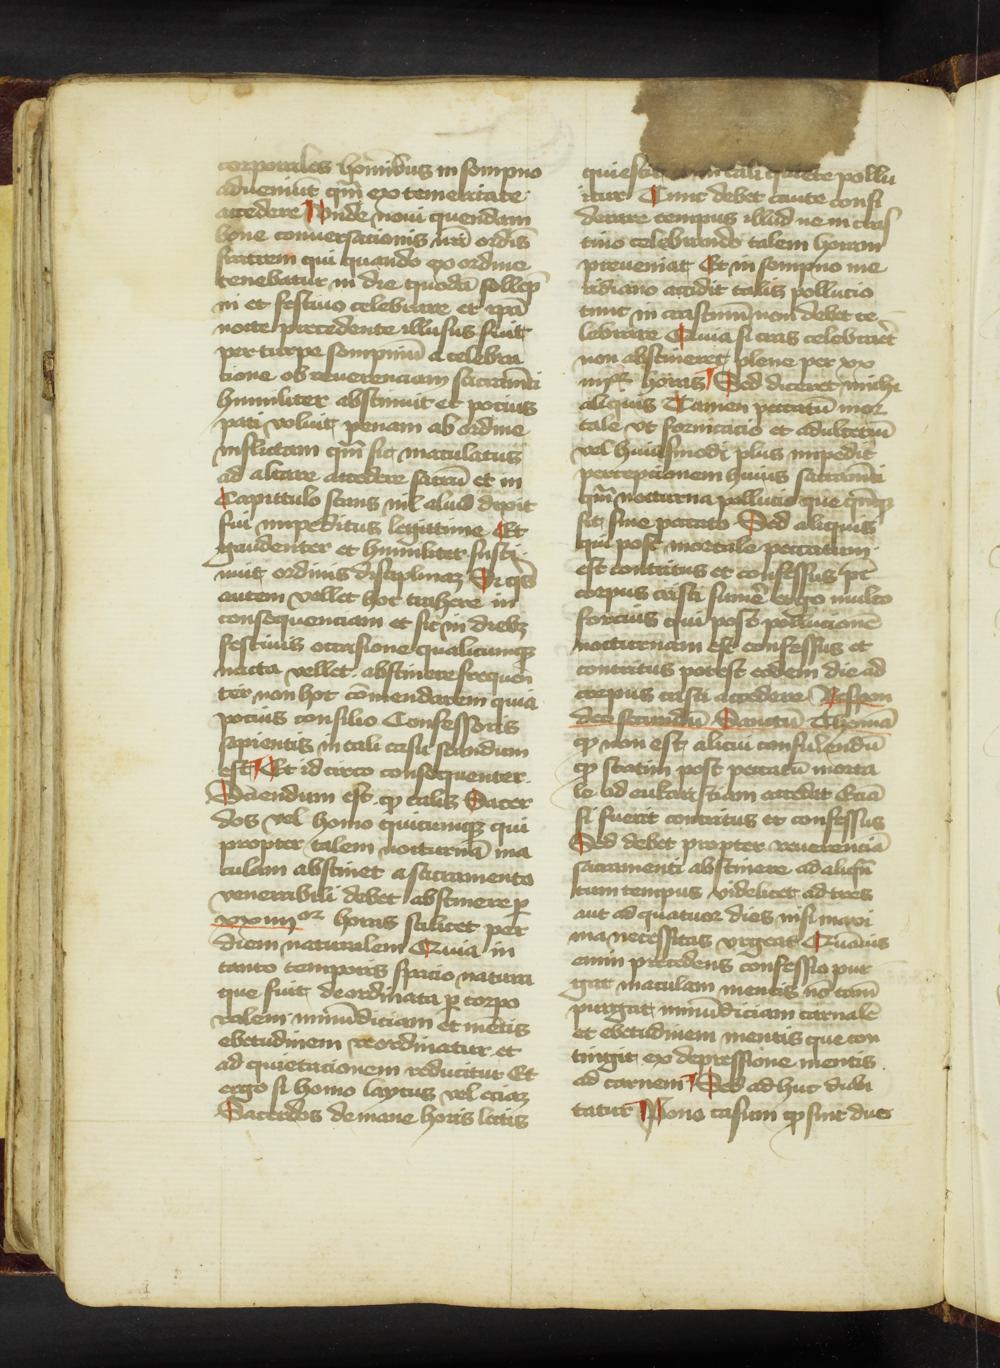 corporales hoı̄nibus in sompno
adveniūt qm̄ ex temeritate
accedere Unde novi quendam
bone conversacionis nr̄i ordīs
fratrem qui quando ex ordine
tenebatur in die quodā sollēp
ni et festivo celebrare et ip̄a
nocte precedente illusus fuit
per turpe sompniū a celebra
cione ob reverenciam sacram̄ti
humiliter abstinuit et pocius
pati voluit penam ab ordine
inflictam qm̄ sic maculatus
ad altare accedere sacrū et in
Capittulo stans nil aliud dixit
fui impeditus legittime Et
gaudenter et humiliter susti
nuit ordinis disciplinaʒ Si qīs
autem vellet hoc trahere in
consequenciam et sic in diebʒ
festivis occasione qualicumqʒ
nacta vellet abstinere frequen̄
ter non hoc cōmendarem quia
pocius consilio Confessoris
sapientis in tali casu standum
est Et id circo consequenter
Sciendum est qꝫ talis Sacer
dos vel homo quicumqʒ qui
propter talem nocturnā ma
culam abstinet a sacramento
venerabili debet abstinere ꝑ
xxiiii or horas scilicet per
diem naturalem Quia in
tanto temporis spacio natura
que fuit deordinata ꝑ corpo
ralem immūdiciam et mētis
ebetudinem reordinatur et
ad quietacionem reducitur Et
ergo si homo laycus vel eciaʒ
Sacerdos de mane horis lectis
quiescit in tali quiete pollu
itur Tunc debet caute consi
derare tempus illud ne in cras
tino celebrando talem horam
preveniat Et in sompno me
ridiano accidit talis pollucio
tunc in crastinū non debet ce
lebrare Quia si cras celebraret
non abstineret plene per xx
horas Sed diceret michi
aliquis Tamen peccatū mor
tale ut fornicacio et adulteriū
vel huiusmodi plus impedit
percepcionem huius sacram̄ti
qm̄ nocturna pollucio que
fit sine peccato Sed aliquis
qui post mortale peccatum
est contritus et confessus pt̄
corpus cristi sumē ergo multo
forcius qui post pollucionē
nocturnam est confessus et
contritus potest eodem die ad
corpus cristi accedere Respon
deo secundū Sanctū Thomā
qꝫ non est alicui consulendū
qꝫ statim post peccatū morta
le ad eukaristiam accedat Eciā
si fuerit contritus et confessus
Sed debet propter reverenciā
sacramenti abstinere ad aliqn̄
tum tempus videlicet ad tres
aut ad quatuor dies nisi maxi
ma necessitas urgeat Quamvis
enim precedens confessio pur
gat maculam mentis nō tam̄
purgat immūdiciam carnalē
et ebetudinem mentis que con
tingit ex depressione mentis
ad carnem Sed ad huc dubi
tatur Pono casum qꝫ sint duo